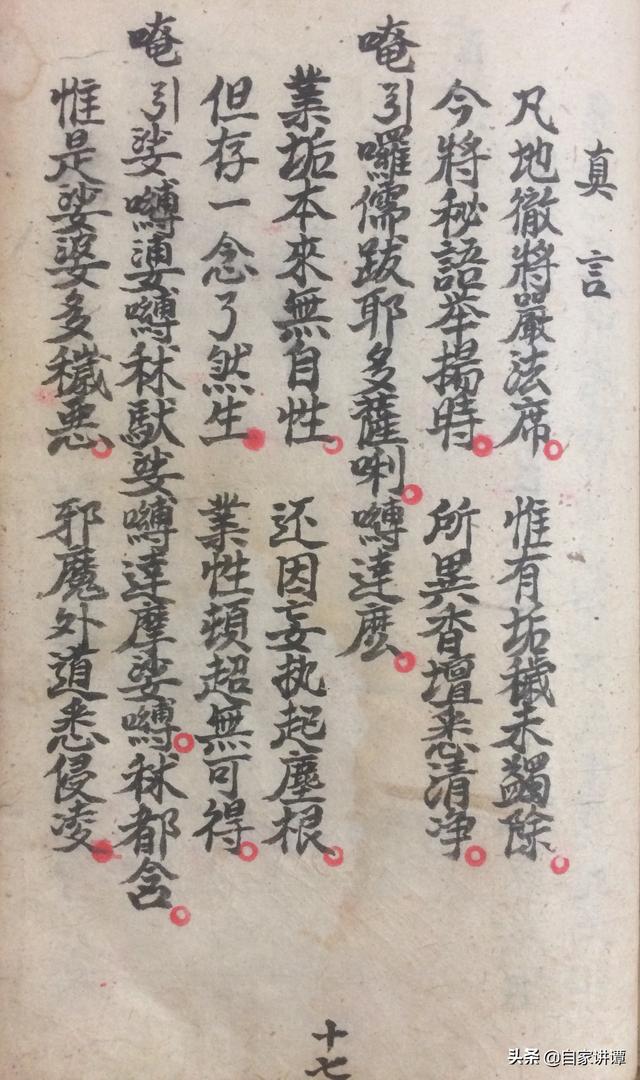 真言
凡地徹將嚴法席 惟有垢穢未蠲除
今將秘語举揚時 所異香壇悉清净
唵引囉儒跋耶多薩唎嚩達麽
業垢本來無自性 还因妄执起塵根
但存一念了然生 業性頓超無可得
唵引娑嚩婆嚩秫馱娑嚩達摩娑嚩秫都含
惟是娑婆多穢惡 邪魔外道悉侵凌
十七
头条 @自家讲谭